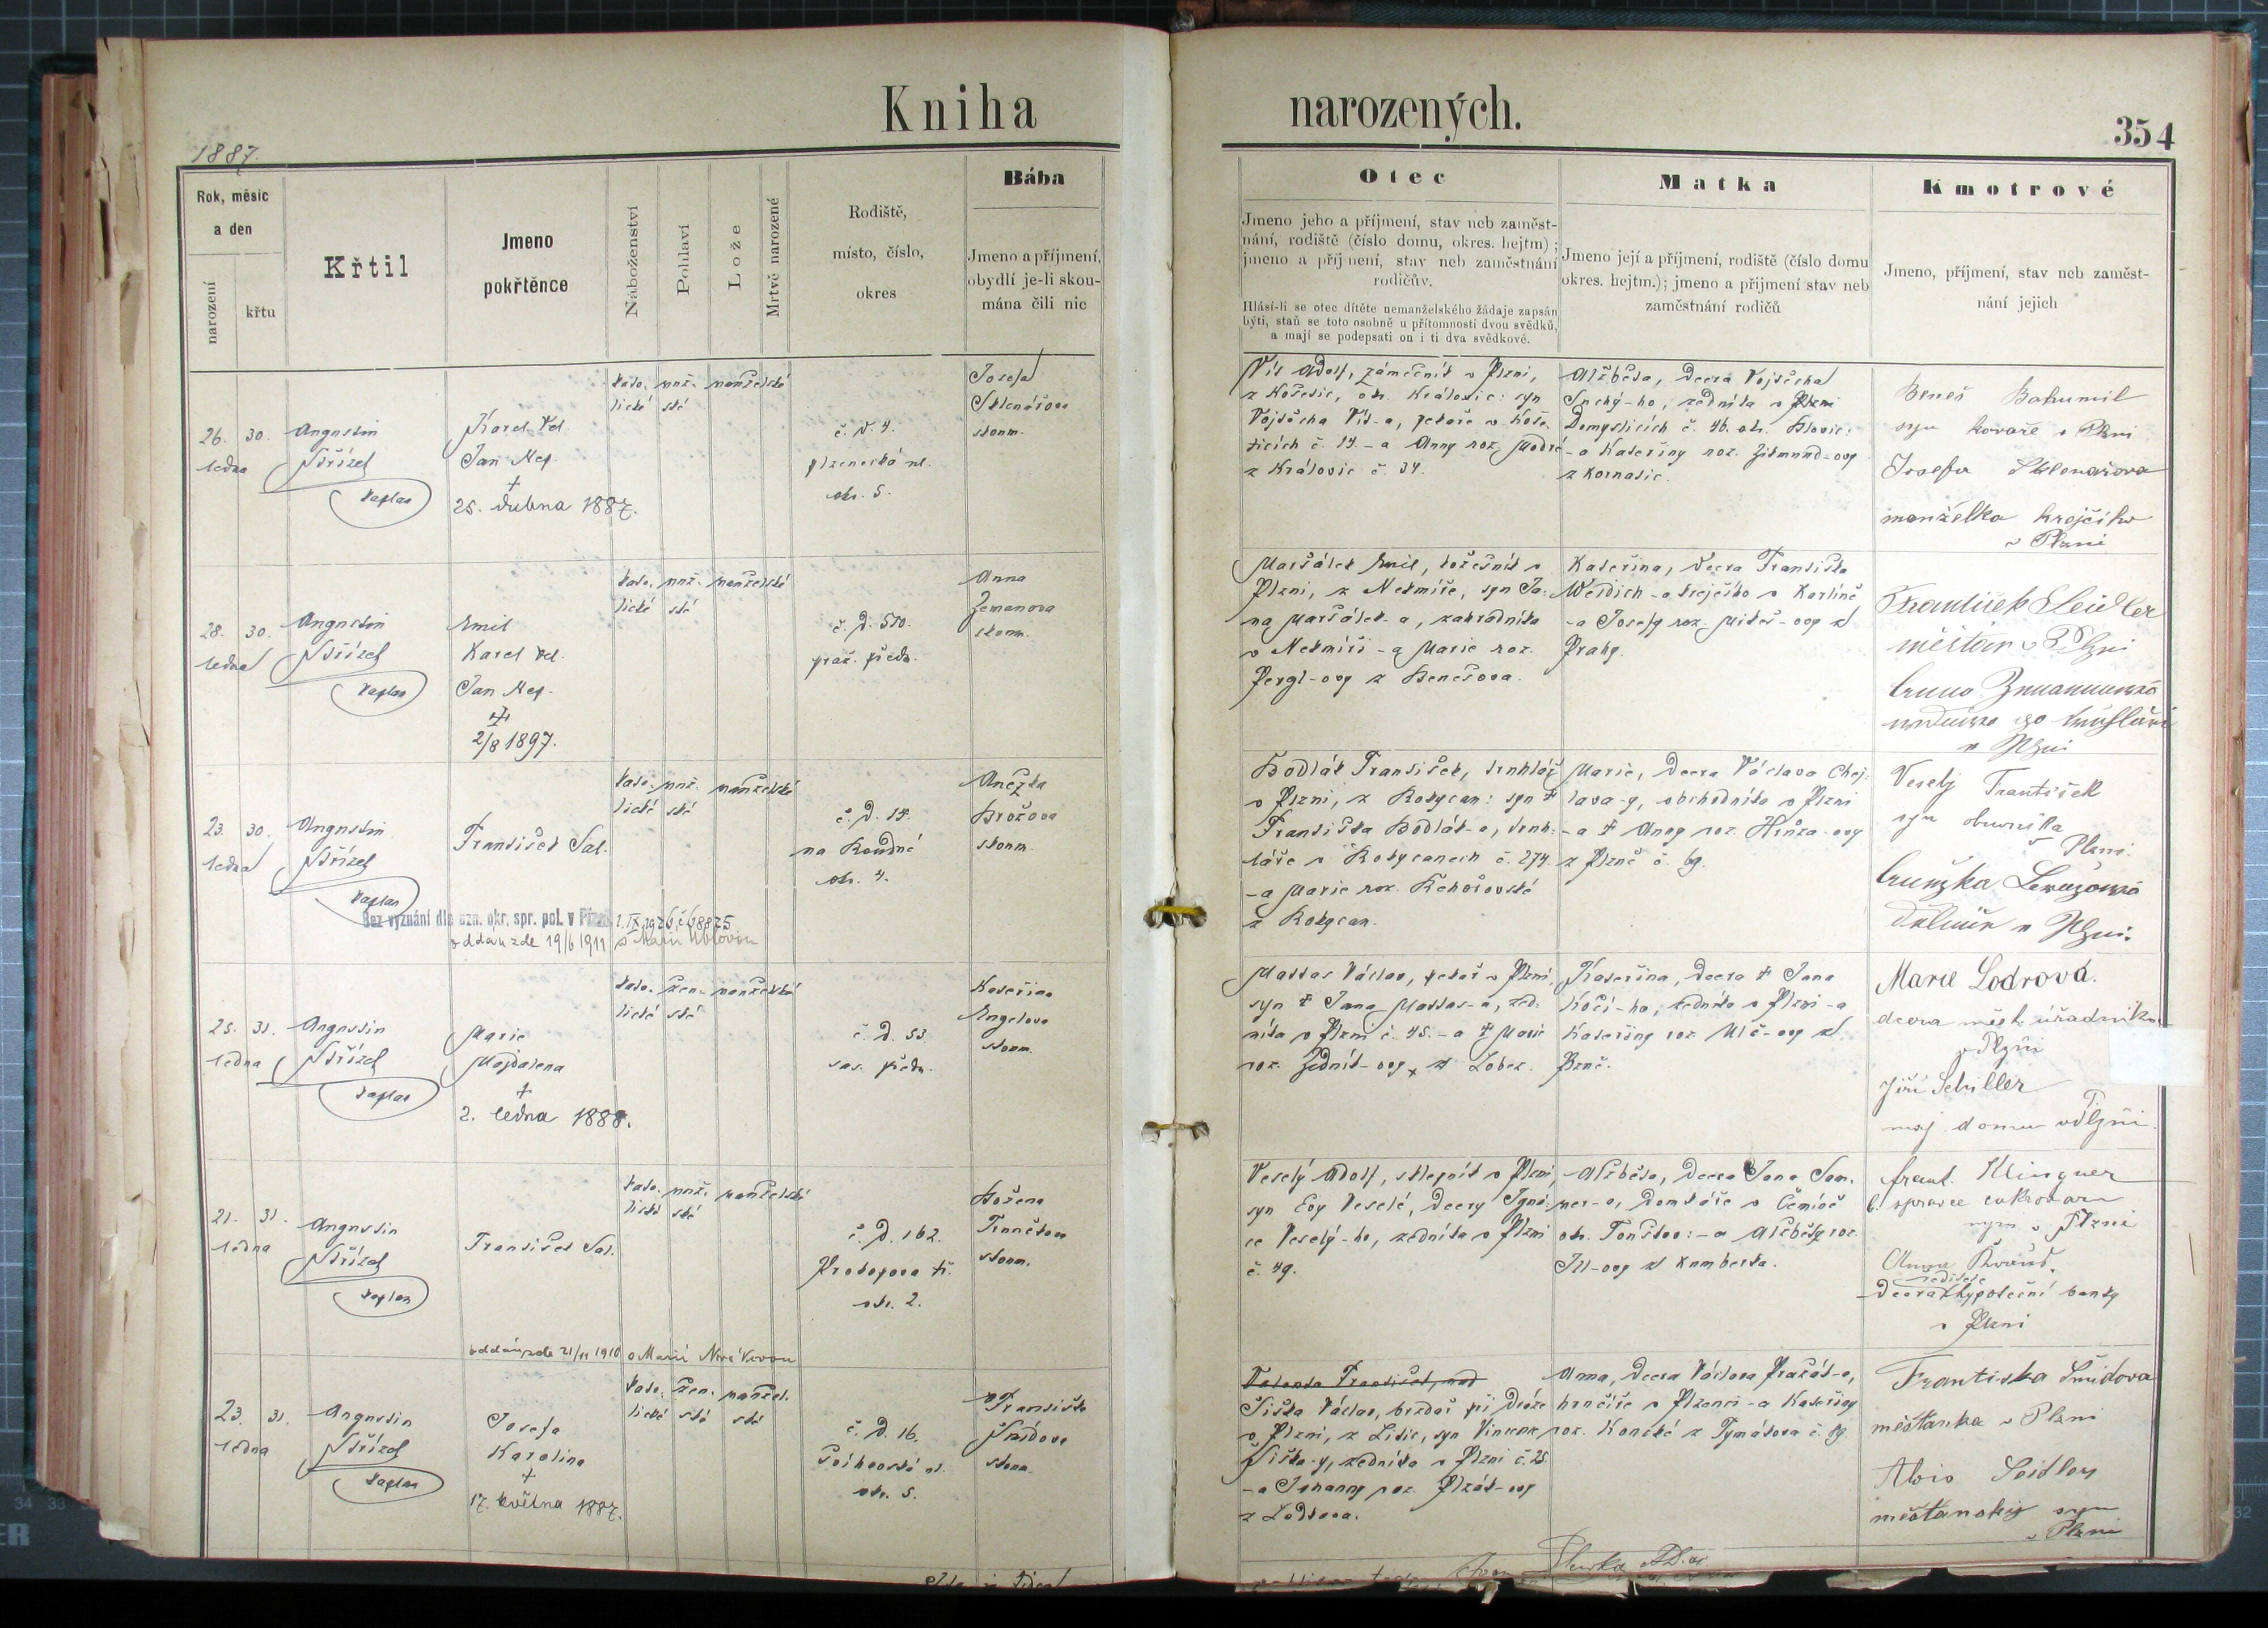 Kniha
narozených.
354
1887.
Rok, měsíc
a den
narození
křtu
Křtil
Jmeno
pokřtěnce
Náboženství
Pohlaví
Lože
Mrtvě narozené
Rodiště,
místo, číslo,
okres
Bába
Jmeno a příjmení,
obydlí je-li skou-
mána čili nic
Otec
Jmeno jeho a příjmení, stav neb zaměst-
nání, rodiště (číslo domu, okres. hejtm) ;
jmeno a příjmení, stav neb zaměstnání
rodičův.
Hlásí-li se otec dítěte nemanželského žádaje zapsán
býti, staň se toto osobně u přítomnosti dvou svědků,
a mají se podepsati on i ti dva svědkové.
Matka
Jmeno její a příjmení, rodiště (číslo domu
okres. hejtm.); jmeno a přijmení stav neb
zaměstnání rodičů
Kmotrové
Jmeno, příjmení, stav neb zaměst-
nání jejich
26. 30.
ledna
Augustin
Střízel
kaplan
Karel Vel.
Jan Nep.
+
25. dubna 1887.
kato- muž- manželské
lické ské
č. d. 4.
plzenecká ul.
okr. 5.
Josefa
Sklenářova
skoum.
Vít Adolf, zámečník v Plzni,
z Kožešic, okr. Královic: syn
Vojtěcha Vít-a, pekaře v
č. 14. - a Anny roz. Modré
z Královic č. 34.
Alžběta, dcera Vojtěcha
Suchý-ho, zedníka v Plzni
Domyslicích č. 46. okr.
- a Kateřiny roz. Zikmund-ovy
z Kornatic.
Beneš Bohumil
syn kovaře v Plzni
Josefa Sklenařova
manželka krejčího
v Plzni
28. 30.
ledna
Augustin
Střízel
kaplan
Emil
Karel Vel.
Jan Nep.
2/8 1897.
kato- muž- manželské
lické ské
č. d. 570.
praž. předm.
Anna
Zemanova
skoum.
Maršálek Emil, kožešník v
Plzni, z Nekmíře, syn Ja-
na Maršálek-a, zahradníka
v Nekmíři - a Marie roz.
Pergl-ovy z Benešova.
Kateřina, dcera Františka
Weidich-a krejčího v Karlíně
- a Josefy roz. Mikeš-ovy z
Prahy.
František Seidler
měšťan v Plzni
v Plzni
23. 30.
ledna
Augustin
Střízel
kaplan
František Sal.
Bez vyznání dle ozn. okr. spr. pol. v Plzni 1. IX. 1926, č. 18875
oddán zde 19/6 1911 s Marií
kato- muž- manželské
lické ské
č. d. 14.
na Roudné
okr. 4.
Anežka
Brožova
skoum.
Bodlák František, truhlář
v Plzni, z Rokycan: syn +
Františka Bodlák-a, truh-
láře v Rokycanech č. 274.
- a Marie roz. Řehořovské
z Rokycan.
Marie, dcera Václava Chej-
lava-y, obchodníka v Plzni
- a + Anny roz. Hrůza-ovy
z Plzně č. 69.
Veselý František
syn obuvníka
v Plzni.
v Plzni.
25. 31.
ledna
Augustin
Střízel
kaplan
Marie
Majdalena
+
2. ledna 1888.
kato- žen- manželské
lické ské
č. d. 53.
sas. předm.
Kateřina
Engelova
skoum.
Mattas Václav, pekař v Plzni,
syn + Jana Mattas-a, zed-
níka v Plzni č. 45. - a + Marie
roz. Zedník-ovy z Lobez.
Kateřina, dcera + Jana
Kočí-ho, zedníka v Plzni - a
Kateřiny roz. Ulč-ovy z
Plzně.
Marie Lodrová.
dcera měst. úřadníka
v Plzni
Jiří Schiller
maj. domu v Plzni.
21. 31.
ledna
Augustin
Střízel
kaplan
František Sal.
oddán zde 21/11 1910 s Marií Novákovou
kato- muž- manželské
lické ské
č. d. 162.
Prokopova tř.
okr. 2.
Božena
skoum.
Veselý Adolf, sklepník v Plzni,
syn Evy Veselé, dcery Igná-
ce Veselý-ho, zedníka v Plzni
č. 49.
Alžběta, dcera Jana Som-
mer-a, domkáře v
- a Alžběty roz.
Ill-ovy z Kumberka.
Frant. Klingner
b. správce cukrovaru
v Plzni
Anna
ředitele
dcera hypoteční banky
v Plzni
23. 31.
ledna
Augustin
Střízel
kaplan
Josefa
Karolina
+
17. května 1887.
kato- žen- manžel-
lické ské ské
č. d. 16.
okr. 5.
Františka
Šmídova
skoum.
Šiška Václav, brzdař při dráze
v Plzni, z Litic, syn Vincenc
Šiška-y, zedníka v Plzni č. 25.
- a Johanny roz. Plzák-ovy
z
Anna, dcera Václava Pražák-a,
hrnčíře v Plzenci - a Kateřiny
roz. Konické z Tymákova č. 89.
Františka Šmídova
měšťanka v Plzni
Alois Seidler
měšťanský syn
v Plzni